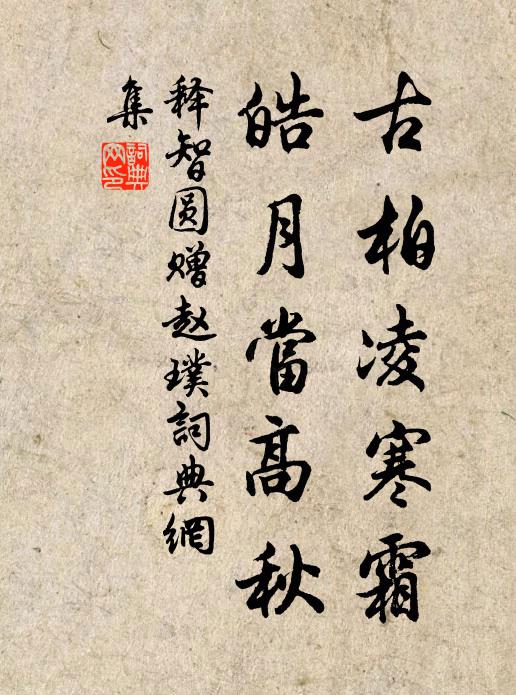 古柏凌寒霜
皓月當高秋
释智圆赠赵璞詞典網
集
詞典
网印